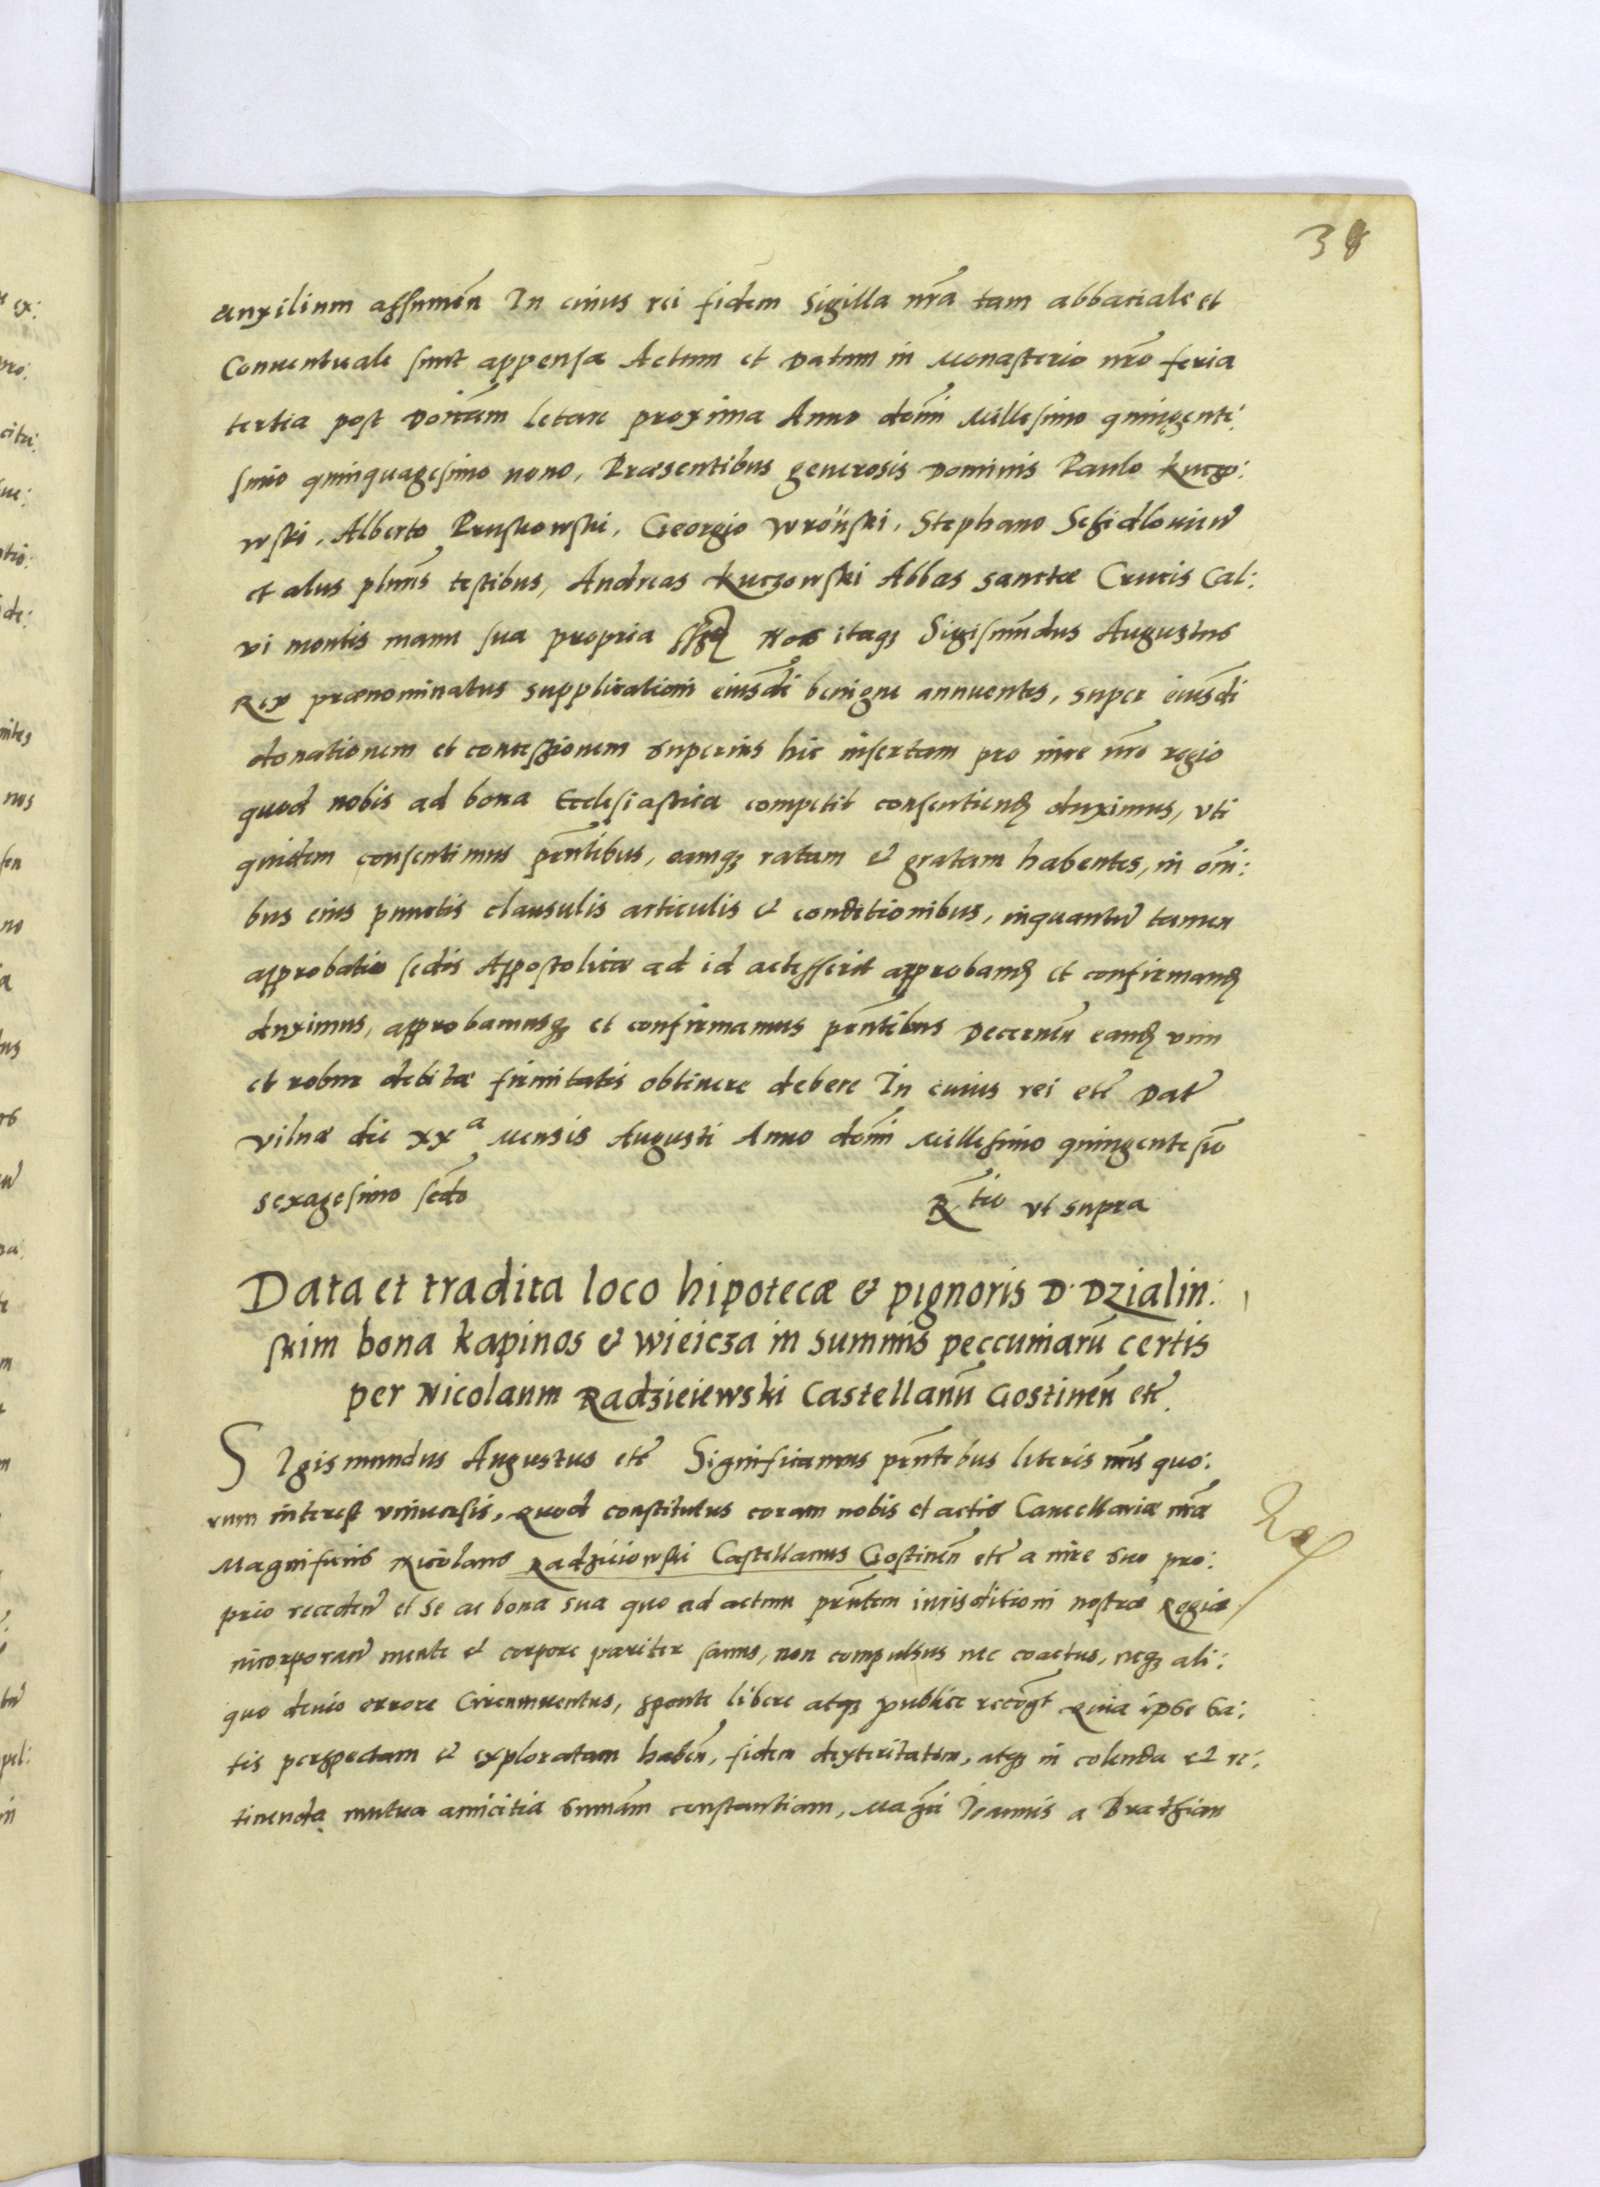 38
auxilium assumen̄ In cuius rei fidem Sigilla nr̄a tam abbatiale et
Conuentuale sunt appensa Actum et Datum in Monasterio nr̄o feria
tertia post Doīcam letare proxima Anno domī Millesimo quingente:
simo quinquagesimo nono, Præsentibus generosis Dominis Paulo Kuczo:
wski, Alberto Pruskowski, Georgio Wronski, Stephano
et alijs plurīs testibus, Andreas Kuczowski Abbas sanctæ Crucis Cal:
vi montis manu sua propria Nos itaq3 Sigismūdus Augustus
Rex prænominatus supplicationi eiusdī benigne annuentes, super eiusdī
donationem et concessionem superius hic insertam pro iure nr̄o regio
quod nobis ad bona Ecclesiastica competit consentiend duximus, vti
quidem consentimus pn̄tibus, eamq3 ratam & gratam habentes, in om̄i:
bus eius punctis clausulis articulis & conditionibus, inquantū tamen
approbatio sedis Appostolicæ ad id accesserit approband et confirmand
duximus, approbamusq3 et confirmamus pn̄tibus Decernen̄ eand vim
et robur debitæ firmitatis obtinere debere In cuius rei etc̄ Dat̄
Vilnæ die XXa Mensis Augusti Anno domī Millesimo quingentesīo
sexagesimo secdo
Rtio vt supra
Data et tradita loco hipotecæ & pignoris D. Dzialin:
skim bona Kapinos & Wieicza in summis peccuniarū certis
per Nicolaum Radzieiewski Castellanū Gostinen̄ etc̄.
SIgismundus Augustus etc̄ Significamus pn̄tibus literis nr̄is quo:
rum interest vniuersis, Quod constitutus coram nobis et actis Cancellariæ nr̄æ
Magnificus Nicolaus Radzieiowski Castellanus Gostinen̄ etc̄ a iure suo pro:
prio receden̄ et se ac bona sua quo ad actum pn̄tem iurisditioni nostræ Regiæ
incorporan̄ mente et corpore pariter sanus, non compulsus nec coactus, neq3 ali:
quo deuio errore Circumuentus, sponte libere atq3 publice recoḡt Quia ipse sa:
tis perspectam & exploratam haben̄, fidem dexteritatem, atq3 in colenda et re:
tinenda mutua amicitia summā constantiam, Magci Ioannis a Brathian